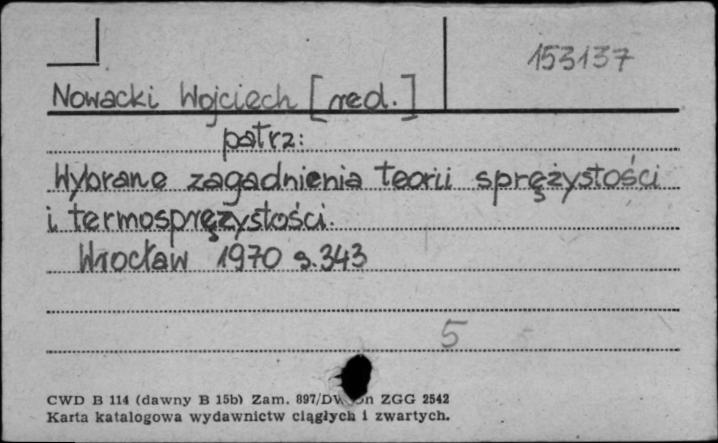 153137
Nowacki Wojciech [red.]
patrz:
Wybrane zagadnienia teorii sprężystości
i termosprężystości.
Wrocław 1970 s.343
5
CWD B 114 (dawny B 15b) Zam. 897/DW ZGG 2542
Karta katalogowa wydawnictw ciągłych i zwartych.